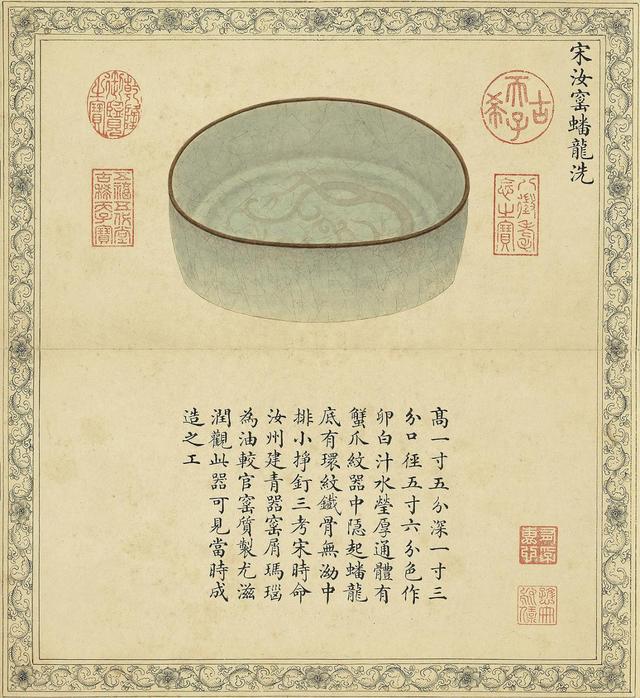 宋汝窰蟠龍洗
古希天子
八徵耄念之寶
乾隆御覽之寶
五福五代堂古稀天子寶
高一寸五分深一寸三
分口徑五寸六分色作
卵白汁水瑩厚通體有
蟹爪紋器中隱起蟠龍
底有環紋鐵骨無泑中
排小掙釘三考宋時命
汝州建青器窰屑瑪瑙
為油較官窰質製尤滋
潤觀此器可見當時成
造之工